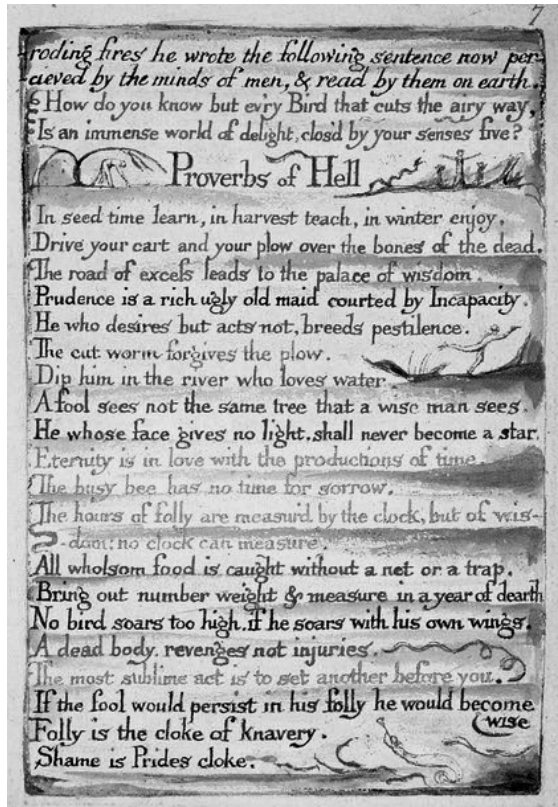 7
roding fires he wrote the following sentence now per-
cieved by the minds of men, & read by them on earth.
How do you know but evry Bird that cuts the airy way,
Is an immense world of delight, clos'd by your senses five?
Proverbs of Hell
In seed time learn, in harvest teach, in winter enjoy.
Drive your cart and your plow over the bones of the dead.
The road of excess leads to the palace of wisdom.
Prudence is a rich ugly old maid courted by Incapacity.
He who desires but acts not, breeds pestilence.
The cut worm forgives the plow.
Dip him in the river who loves water.
A fool sees not the same tree that a wise man sees.
He whose face gives no light, shall never become a star.
Eternity is in love with the productions of time.
The busy bee has no time for sorrow.
The hours of folly are measur'd by the clock, but of wis-
-dom: no clock can measure.
All wholsom food is caught without a net or a trap.
Bring out number weight & measure in a year of dearth
No bird soars too high. if he soars with his own wings.
A dead body. revenges not injuries.
The most sublime act is to set another before you.
If the fool would persist in his folly he would become
wise
Folly is the cloke of knavery.
Shame is Prides cloke.